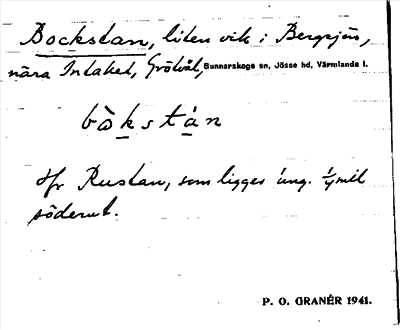 Bockstan, liten vik i Bergsjön,
nära Intaket, Gräsvål, Gunnarskogs sn, Jösse hd, Värmlands l.
bòkstán
Jfr Rustan, som ligger ung. ½ mil
söderut.
P. O. GRANÉR 1941.